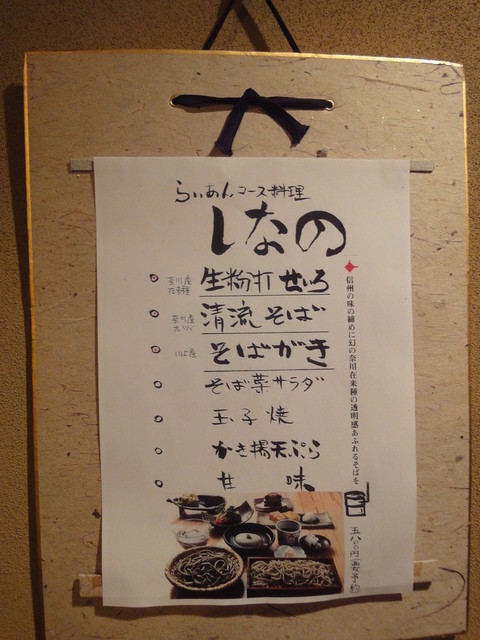 らぃあんコース料理
しなの
信州の味の締めに幻の奈川在来種の透明感あふれるそばを
奈川産
在来種
生粉打せいろ
奈川産
清流そば
川上産
そばがき
そば菜サラダ
玉子焼
かき揚天ぷら
甘味
五八〇〇円 要予約